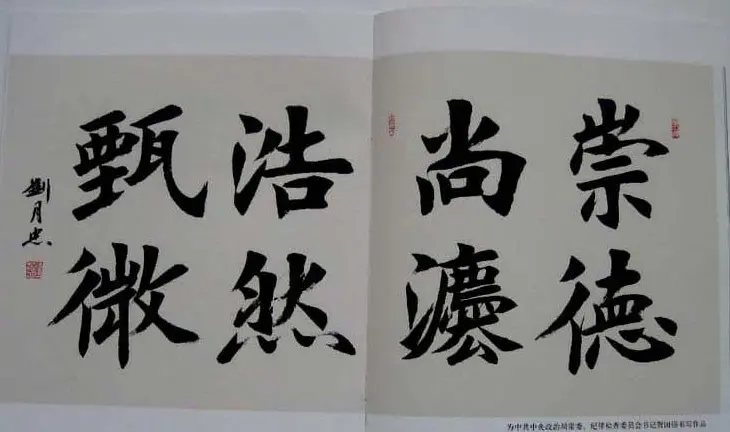 崇德
尚灋
浩然
甄微
劉月忠
为中共中央政治局常委、纪律检查委员会书记贺国强书写作品